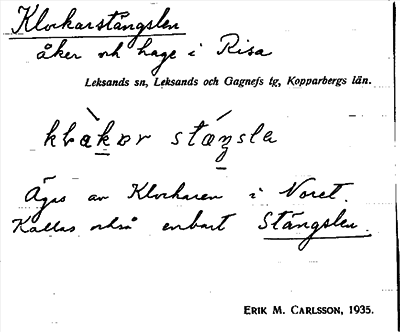 Klockarstängslen
åker och hage i Risa
Leksands sn, Leksands och Gagnefs tg, Kopparbergs län.
stáŋslα
Äges av Klockaren i Noret.
Kallas också enbart Stängslen.
ERIK M. CARLSSON, 1935.